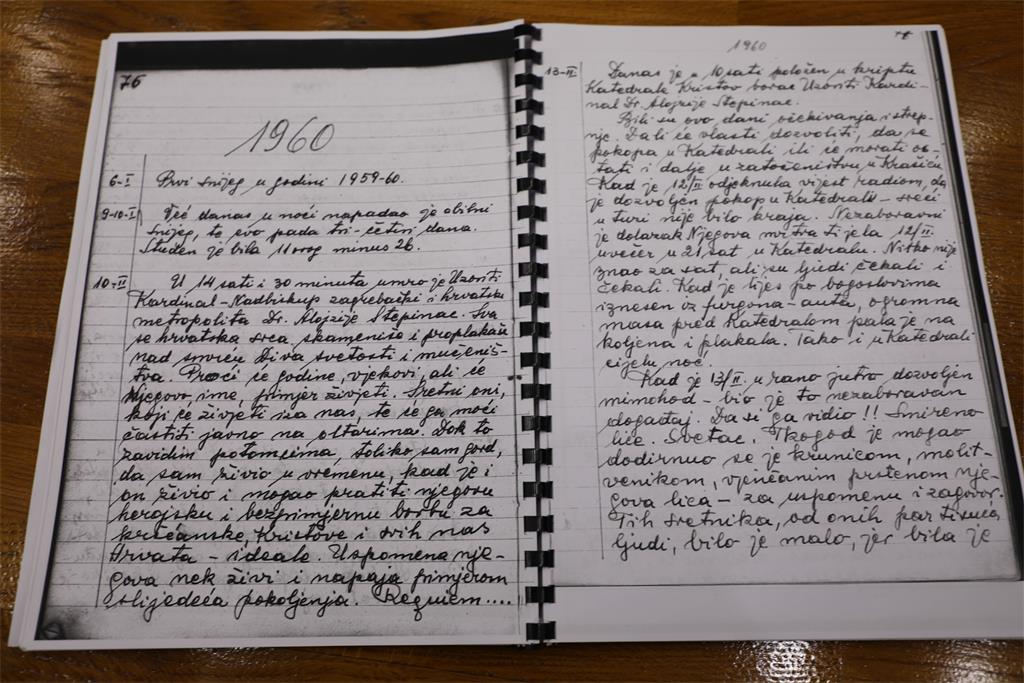 76
1960
6-I Prvi snijeg u godini 1959-60.
9-10-I Već danas u noći napadao je obilni
snijeg, te evo pada tri-četiri dana.
Studen je bila 11 ovog minus 26.
10-II U 14 sati i 30 minuta umro je Uzoriti
Kardinal-Nadbiskup zagrebački i hrvatski
metropolita Dr. Alojzije Stepinac. Sva
se hrvatska srca, skameniše i proplakaše
nad smrću Živa svetosti i mučeniš-
tva. Proći će godine, vjekovi, ali će
Njegovo, ime, primjer živjeti. Sretni oni,
koji će živjeti iza nas, te će ga moći
častiti javno na oltarima. Dok to
zavidim potomcima, toliko sam gord,
da sam živio u vremenu, kad je i
on živio i mogao pratiti njegovu
herojsku i besprimjernu borbu za
kršćanske, Kristove i svih nas
Hrvata - ideale. Uspomena nje-
gova nek živi i napaja primjerom
slijedeća pokoljenja. Requiem....
1960
13-II Danas je u 10 sati položen u kriptu
Katedrale Kristov borac Uzoriti Kardi-
nal Dr. Alojzije Stepinac.
Bili su ovo dani očekivanja i strep-
nje. Da li će vlasti dozvoliti, da se
pokopa u Katedrali ili će morati os-
tati i dalje u zatočeništvu u Krašiću.
Kad je 12/II odjeknula vijest radiom, da
je dozvoljen pokop u Katedrali - sreći
u turi nije bilo kraja. Nezaboravni
je dolazak Njegova mrtva tijela 12/II.
uvečer u 21 sat u Katedralu. Nitko nije
znao za sat, ali su ljudi čekali i
čekali. Kad je lijes po bogoslovima
iznesen iz furgona-auta, ogromna
masa pred Katedralom pala je na
koljena i plakala. Tako i u Katedrali
cijelu noć.
Kad je 13/II. u rano jutro dozvoljen
mimohod - bio je to nezaboravan
događaj. Da si ga vidio!! Smireno
lice. Svetac. Tkogod je mogao
dodirnuo se je krunicom, molit-
venikom, vjenčanim prstenom nje-
gova lica - za uspomenu i zagovor.
Tih sretnika, od onih par tisuća
ljudi, bilo je malo, jer bila je